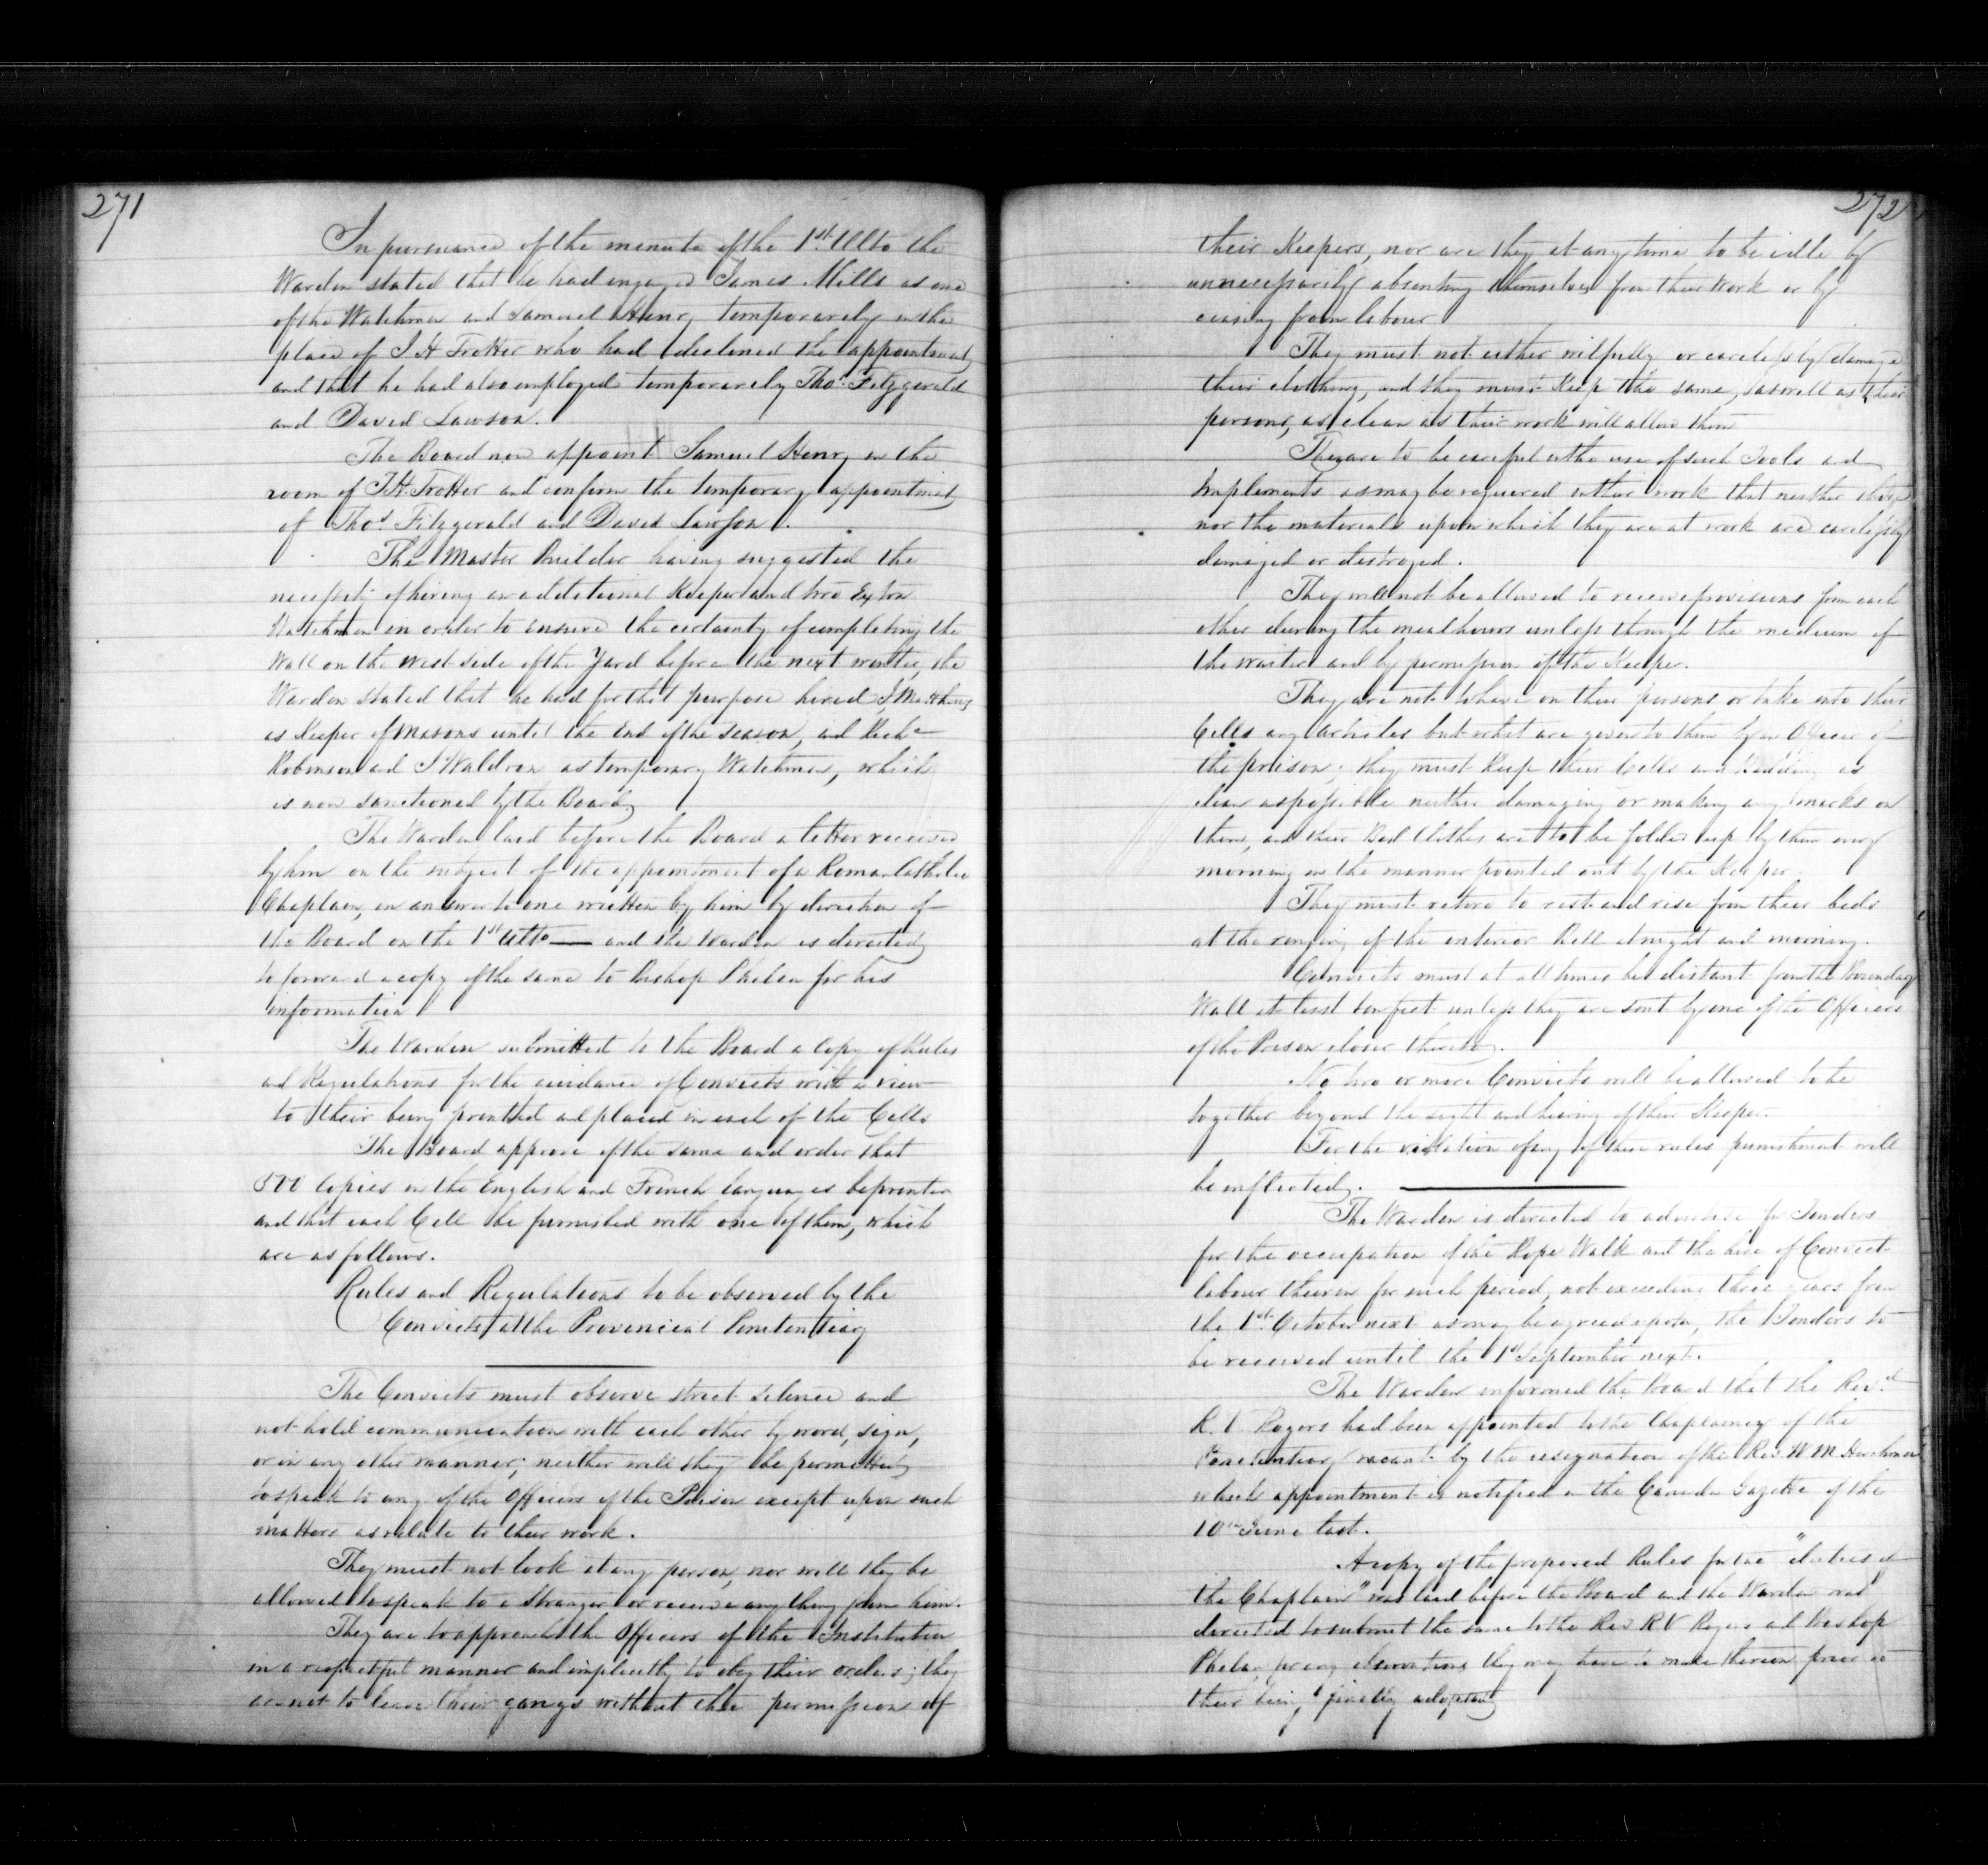 271
In pursuance of the minute of the 1st Ulto the
Warden stated that he had engaged James Mills as one
of the Watchmen and Samuel Henry temporarely in the
place of J H Trotter who had declined the appointment
and that he had also employed temporarely Thos. Fitzgerald
and David Lawson.
The Board now appoint Samuel Henry in the
room of J.H. Trotter and confirm the temporary appointment
of Thos Fitzgerald and David Lawson.
The Master Builder having suggested the
necessity of hiring an additional Keeper and two Extra
Watchmen in order to ensure the certainty of completing the
Wall on the west side of the Yard before the next winter, the
Warden stated that he had for that purpose hired J. Matthews
as Keeper of Masons until the End of the Season, and Richd
Robinson and J Waldron as temporary Watchmen, which
is now sanctioned by the Board,
The Warden laid before the Board a letter received
by him on the subject of the appointment of a Roman Catholic
Chaplain, in answer to one written by him by direction of
the Board on the 1st Ulto — and the Warden is directed
to forward a copy of the same to Bishop Phelan for his
information
The Warden submitted to the Board a Copy of Rules
and Regulations for the guidance of Convicts with a view
to their being printed and placed in each of the Cells
The Board approve of the same and order that
500 Copies in the English and French languages be printed
and that each Cell be furnished with one of them, which
are as follows.
Rules and Regulations to be observed by the
Convicts at the Provincial Penitentiary
The Convicts must observe strict silence and
not hold communication with each other by word, sign,
or in any other manner; neither will they be permitted
to speak to any of the Officers of the Prison except upon such
matters as relate to their work.
They must not look at any person, nor will they be
allowed to speak to a Stranger or receive any thing from him.
They are to approach the Officers of the Institution
in a respectful manner and implicitly to obey their orders; they
are not to leave their gangs without the permission of
272
their Keepers, nor are they at any time to be idle by
unnecessarily absenting themselves from their work or by
ceasing from labour
They must not either wilfully or carelessly damage
their clothing, and they must Keep the same, as well as their
persons, as clean as their work will allow them
They are to be careful in the use of such Tools and
Implements as may be required in their work that neither they
nor the materials upon which they are at work are carelessly
damaged or destroyed.
They will not be allowed to receive provisions from each
other during the meal hours unless through the medium of
the waiter and by permission of the Keeper.
They are not to have on their persons or take into their
Cells any articles but what are given to them by an Officer of
the prison; they must Keep their Cells and Bedding as
clean as possible neither damaging or making any marks on
them, and their Bed Clothes are to be folded up by them every
morning in the manner pointed out by the Keeper
They must retire to rest and rise from their beds
at the ringing of the interior Bell at night and morning.
Convicts must at all times be distant from the Boundary
Wall at least ten feet unless they are sent by one of the Officers
of the Prison closer thereto.
No two or more Convicts will be allowed to be
together beyond the sight and hearing of their Keeper.
For the violation of any of these rules punishment will
be inflicted.
The Warden is directed to advertise for Tenders
for the occupation of the Rope Walk and the hire of Convict
labour therein for such period, not exceeding three years from
the 1st October next as may be agreed upon, the Tenders to
be received until the 1st September next.
The Warden informed the Board that the Revd
R. V Rogers had been appointed to the Chaplaincy of the
Penitentiary vacant by the resignation of the Rev. W M Herchmer
which appointment is notified in the Canada Gazette of the
10th June last.
A copy of the proposed Rules for the "duties of
the Chaplain" was laid before the Board and the Warden was
directed to submit the same to the Rev R V Rogers and Bishop
Phelan, for any observations they may have to make thereon prior to
their being finally adopted